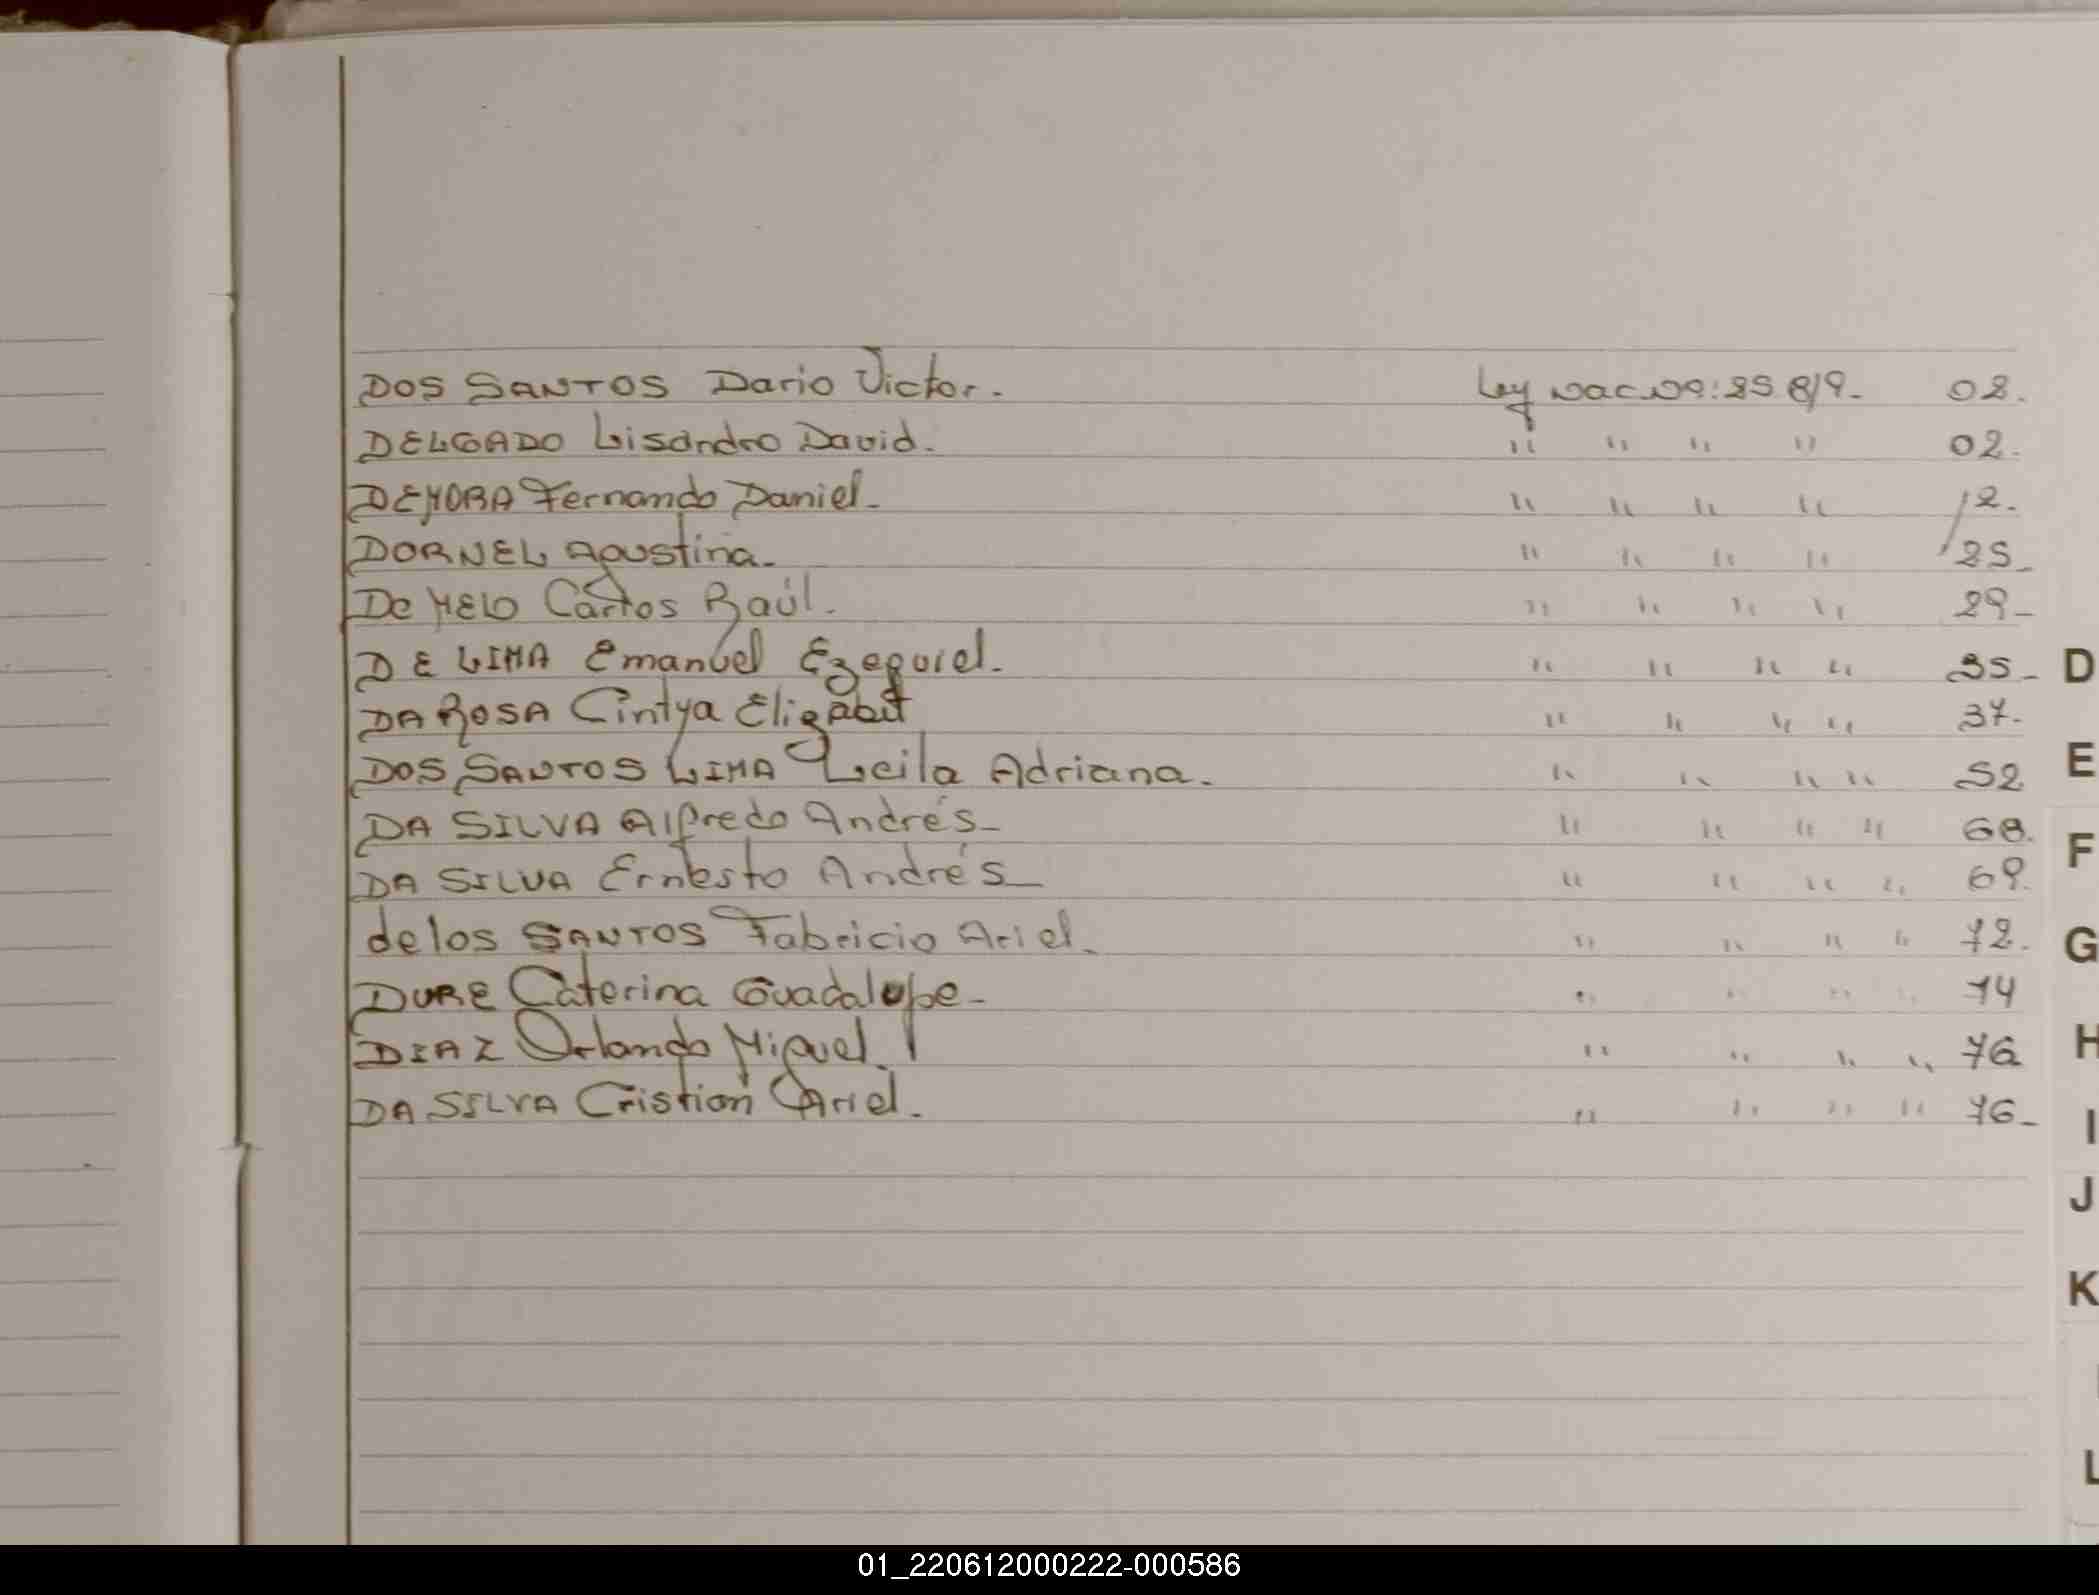 DOS SANTOS Dario Victor. Ley Nac Nº: 25.819- 02.
DELGADO Lisandro David. " " " " 02.
DEMORA Fernando Daniel- " " " " 12.
DORNEL Agustina- " " " " 25-
De MELO Carlos Raúl. " " " " 29-
DE LIMA Emanuel Ezequiel- " " " " 35-
DA ROSA Cintya Elizabit " " " " 37.
DOS SANTOS LIMA Leila Adriana. " " " " 52
DA SILVA Alfredo Andrés- " " " " 68.
DA SILVA Ernesto Andrés- " " " " 69.
de los SANTOS Fabricio Ariel. " " " " 72.
DURE Caterina Guadalupe- " " " " 74
DIAZ Orlando Miguel. " " " " 76
DA SILVA Cristian Ariel. " " " " 76-
D
E
F
G
H
I
J
K
L
01_220612000222-000586